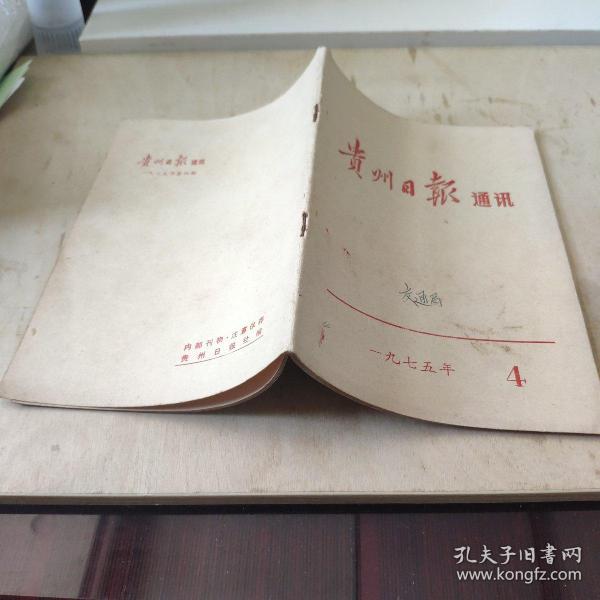 贵州日报 通讯
交通局
一九七五年
4
贵州日报 通讯
一九七五年第四期
内部刊物·注意保存
贵州日报社编
孔夫子旧书网
www.kongfz.com